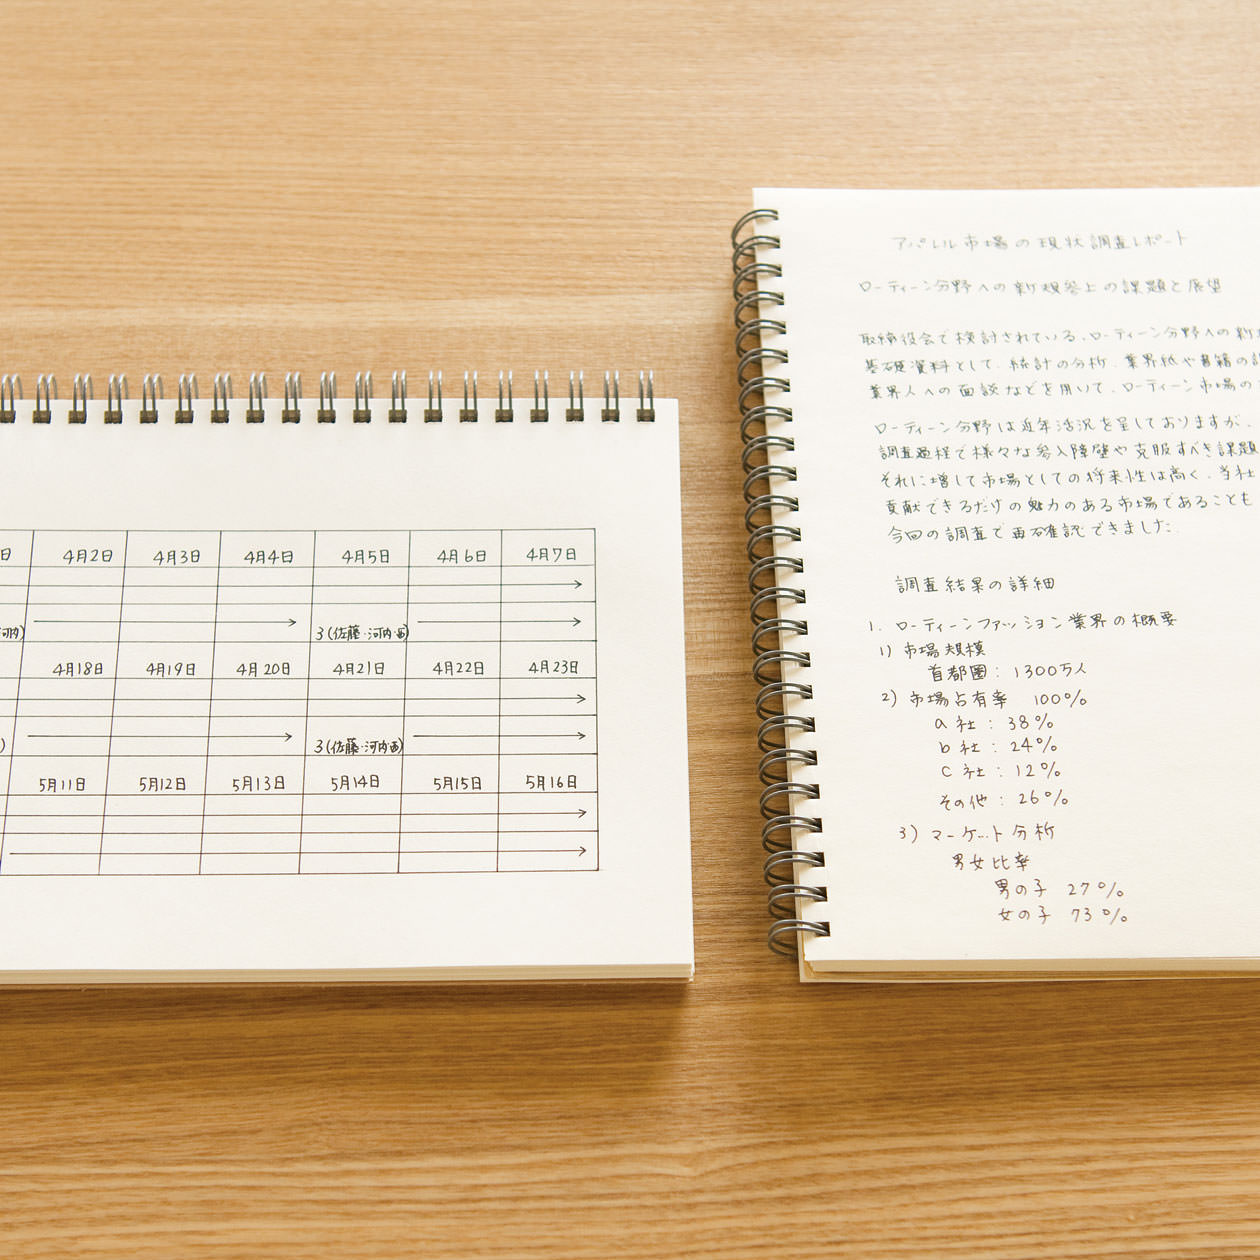 日 4月2日 4月3日 4月4日 4月5日 4月6日 4月7日
河内) 3(佐藤・河内・西)
4月18日 4月19日 4月20日 4月21日 4月22日 4月23日
) 3(佐藤・河内・西)
5月11日 5月12日 5月13日 5月14日 5月15日 5月16日
アパレル市場の現状調査レポート
ローティーン分野への新規参上の課題と展望
取締役会で検討されている、ローティーン分野への新規
基礎資料として、統計の分析、業界紙や書籍の調
業界人への面談などを用いて、ローティーン市場の
ローティーン分野は近年活況を呈しておりますが、
調査過程で様々な参入障壁や克服すべき課題
それに増して市場としての将来性は高く、当社
貢献できるだけの魅力のある市場であることも
今回の調査で再確認できました。
調査結果の詳細
1. ローティーンファッション業界の概要
1) 市場規模
首都圏: 1300万人
2) 市場占有率 100%
a社: 38%
b社: 24%
c社: 12%
その他: 26%
3) マーケット分析
男女比率
男の子 27%
女の子 73%